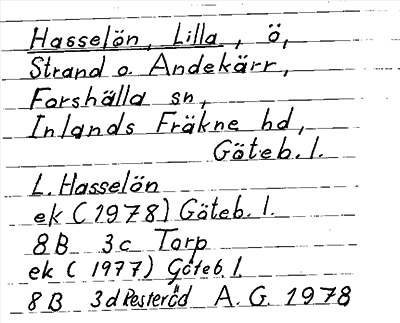 Hasselön, Lilla, ö,
Strand o. Andekärr,
Forshälla sn,
Inlands Fräkne hd,
Göteb. l.
L. Hasselön
ek (1978) Göteb. l.
8B 3c Torp
ek (1977) Göteb. l.
8B 3d Resteröd A. G. 1978